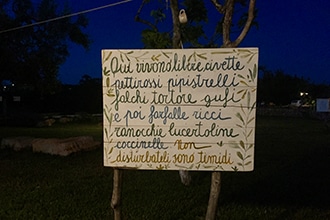 Qui vivono libere, civette
pettirossi pipistrelli
falchi tortore gufi
e poi farfalle ricci
ranocchie lucertoline
coccinelle Non
disturbateli sono timidi